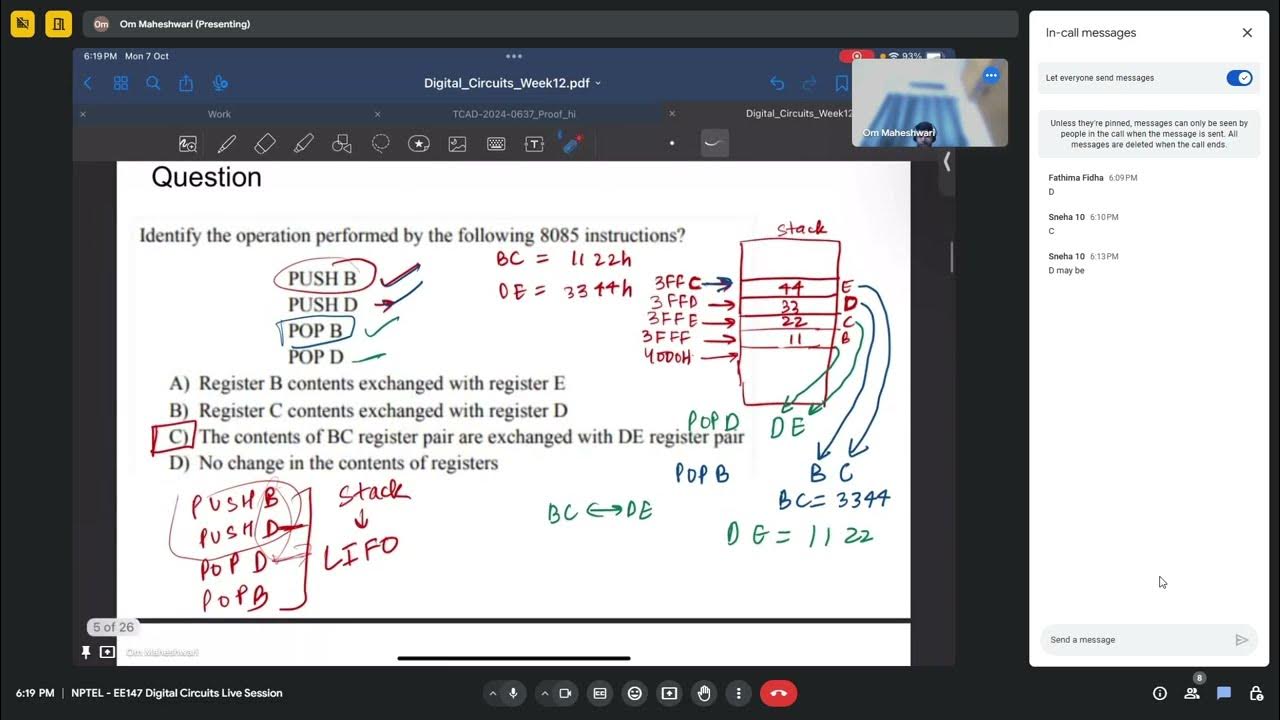 Om
Om Maheshwari (Presenting)
6:19 PM Mon 7 Oct
93%
Digital_Circuits_Week12.pdf
Work
TCAD-2024-0637_Proof_hi
Digital_Circuits_Week12
Om Maheshwari
Question
Identify the operation performed by the following 8085 instructions?
PUSH B
PUSH D
POP B
POP D
A) Register B contents exchanged with register E
B) Register C contents exchanged with register D
C) The contents of BC register pair are exchanged with DE register pair
D) No change in the contents of registers
BC = 1122h
DE = 3344h
Stack
3FFC 44 E
3FFD 33 D
3FFE 22 C
3FFF 11 B
4000H
POP D DE
POP B B C
BC = 3344
DE = 1122
BC ↔ DE
PUSH B
PUSH D
POP D
POP B
Stack
↓
LIFO
5 of 26
Om Maheshwari
In-call messages
Let everyone send messages
Unless they're pinned, messages can only be seen by
people in the call when the message is sent. All
messages are deleted when the call ends.
Fathima Fidha 6:09 PM
D
Sneha 10 6:10 PM
C
Sneha 10 6:13 PM
D may be
Send a message
6:19 PM | NPTEL - EE147 Digital Circuits Live Session
8